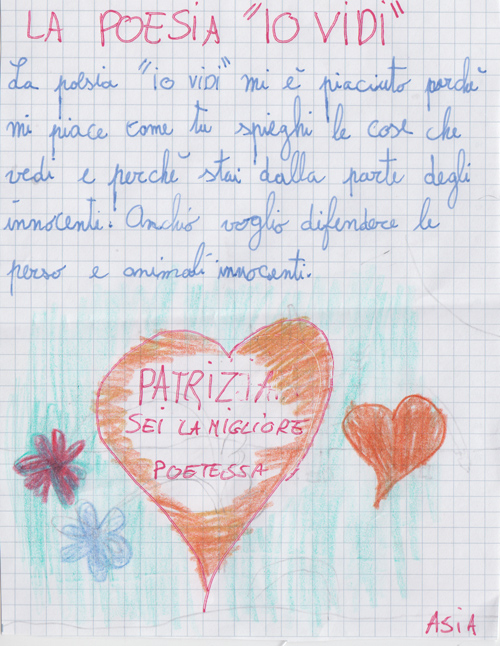 LA POESIA "IO VIDI"
La poesia "io vidi" mi è piaciuto perchè
mi piace come tu spieghi le cose che
vedi e perchè stai dalla parte degli
innocenti. Anch'io voglio difendere le
perso e animali innocenti.
PATRIZIA...
SEI LA MIGLIORE
POETESSA
ASIA